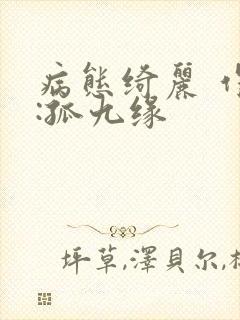 病態綺麗
:孤九缘
坪草,澤貝尔,